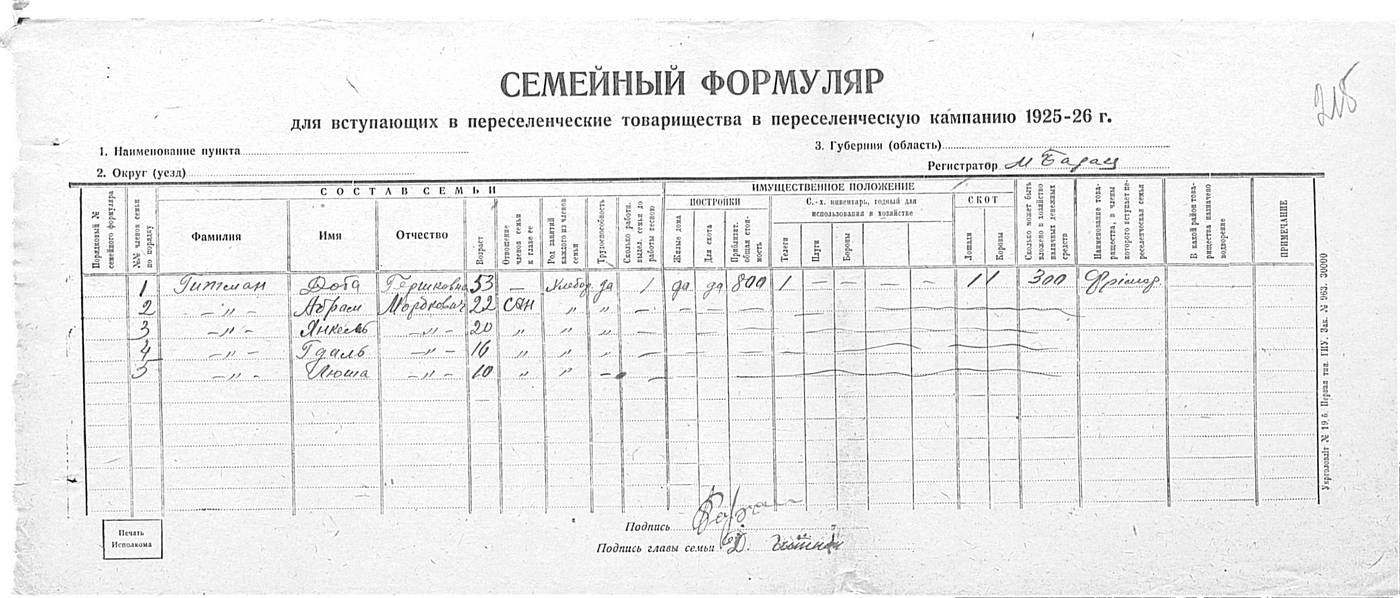 СЕМЕЙНЫЙ ФОРМУЛЯР
215
для вступающих в переселенческие товарищества в переселенческую кампанию 1925-26 г.
1. Наименование пункта
3. Губерния (область)
2. Округ (уезд)
Регистратор М Барац
СОСТАВ СЕМЬИ
ИМУЩЕСТВЕННОЕ ПОЛОЖЕНИЕ
ПОСТРОЙКИ
С.-х. инвентарь, годный для использования в хозяйстве
СКОТ
Порядковый № семейного формуляра
№№ членов семьи по порядку
Фамилия
Имя
Отчество
Возраст
Отношение членов семьи к главе ее
Род занятий каждого из членов семьи
Трудоспособность
Сколько работн. выдел. семьи до работы весною
Жилые дома
Для скота
Приблизит. общая стоимость
Телеги
Плуги
Бороны
Лошади
Коровы
Сколько может быть вложено в хозяйство наличных денежных средств
Наименование товарищества, в члены которого вступает переселенческая семья
В какой район товарищества назначено водворение
ПРИМЕЧАНИЕ
1 Гитман Дота Гершковна 53 — Хлебор да 1 да да 800 1 — — — — 1 1 300
2 — „ — Абрам Мордкович 22 сын „ „ — — — —
3 — „ — Янкель — „ — 20 „ „ „
4 — „ — Гдаль — „ — 16 „ „ „
5 — „ — Июша — „ — 10 „ „ —
Укрголовліт № 19.б. Первая тип. ГИУ. Зак. № 963. 30000
Печать Исполкома
Подпись
Подпись главы семьи Д. Гитман